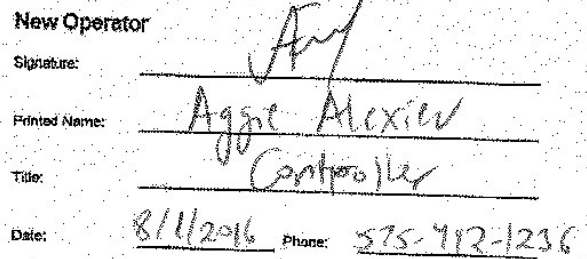 New Operator
Signature:
Printed Name: Aggie Alexiev
Title: Controller
Date: 8/1/2016 Phone: 575-912-1236